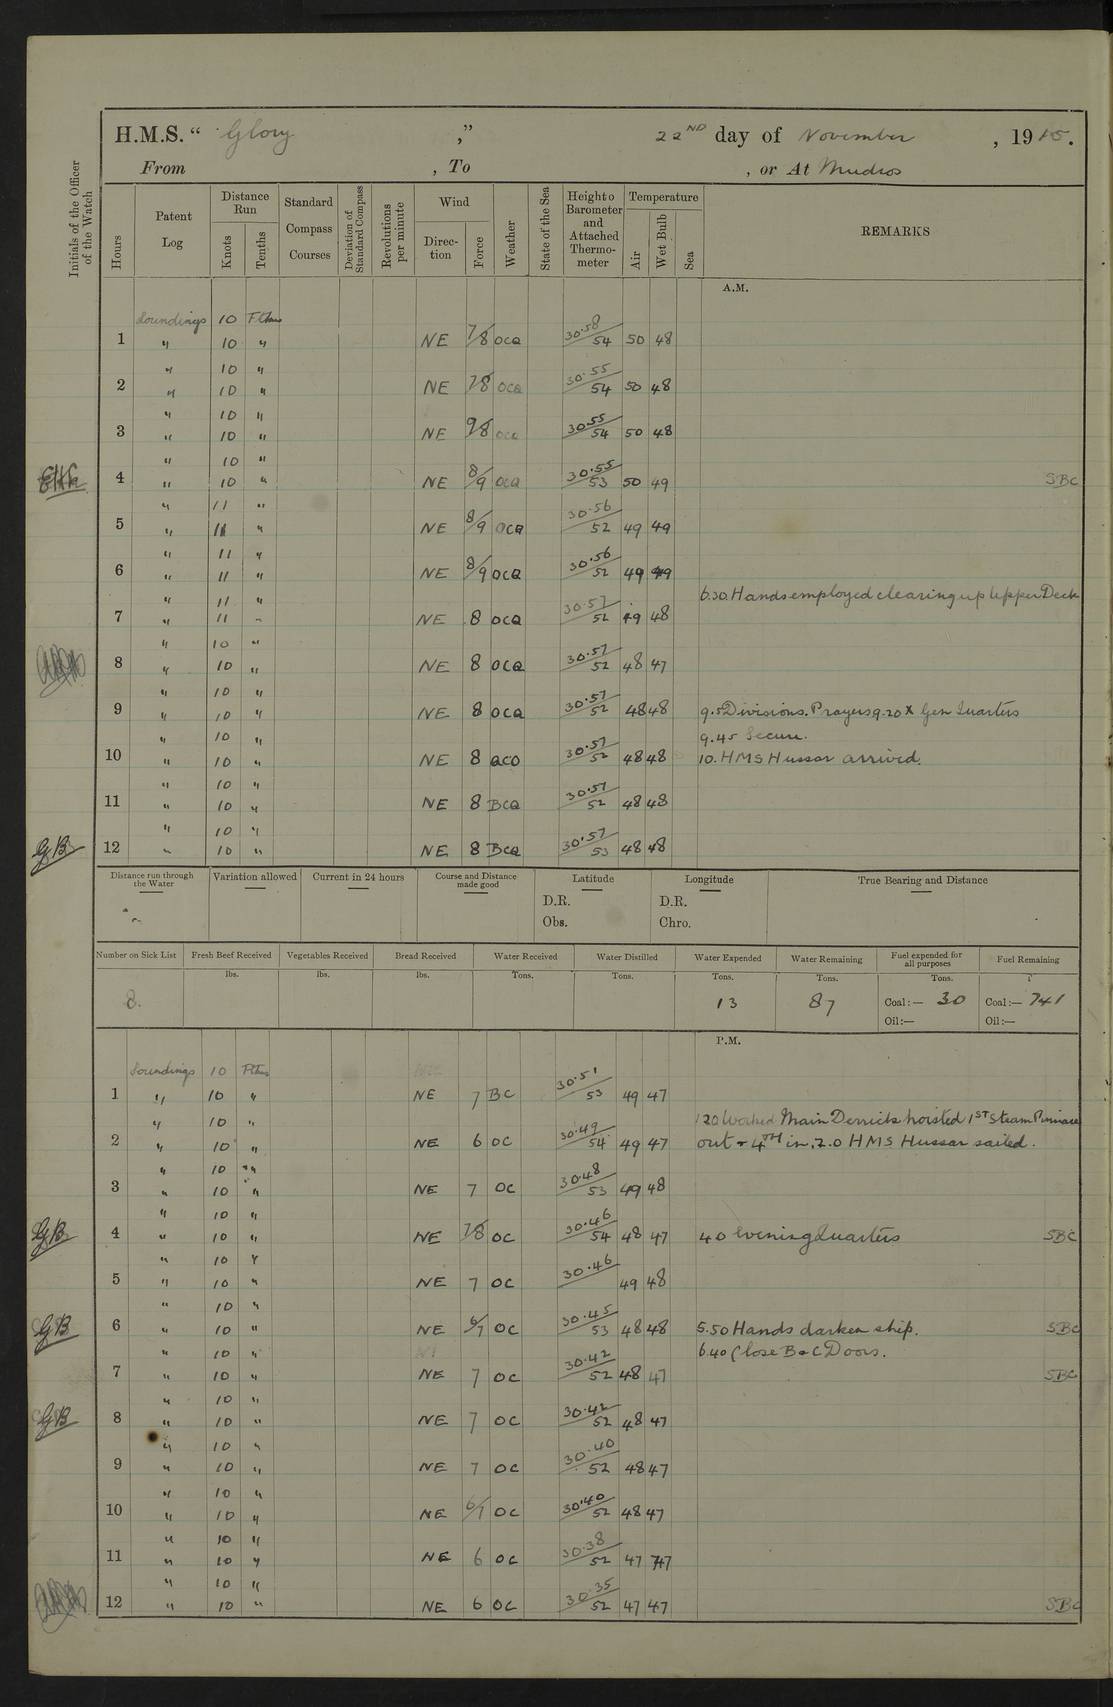 H.M.S. “ Glory ,” 22ND day of November , 1915.
From , To , or At Mudros
Initials of the Officer of the Watch
Hours
Patent Log
Distance Run
Knots
Tenths
Standard Compass Courses
Deviation of Standard Compass
Revolutions per minute
Wind
Direc-tion
Force
Weather
State of the Sea
Height o Barometer and Attached Thermo-meter
Temperature
Air
Wet Bulb
Sea
REMARKS
A.M.
Soundings 10 Fthms
1 " 10 " NE 7/8 ocq 30.58/54 50 48
" 10 "
2 " 10 " NE 7/8 ocq 30.55/54 50 48
" 10 "
3 " 10 " NE 9/8 ocq 30.55/54 50 48
" 10 "
4 " 10 " NE 8/9 ocq 30.55/53 50 49 SBC
" 11 "
5 " 11 " NE 8/9 ocq 30.56/52 49 49
" 11 "
6 " 11 " NE 8/9 ocq 30.56/52 49 49
" 11 " 6.30. Hands employed clearing up Upper Deck
7 " 11 " NE 8 ocq 30.57/52 49 48
" 10 "
8 " 10 " NE 8 ocq 30.57/52 48 47
" 10 "
9 " 10 " NE 8 ocq 30.57/52 48 48 9.5 Divisions. Prayers 9.20 X Gen Quarters
" 10 " 9.45 Secure.
10 " 10 " NE 8 qco 30.57/52 48 48 10. HMS Hussar arrived.
" 10 "
11 " 10 " NE 8 Bcq 30.57/52 48 48
" 10 "
GB 12 " 10 " NE 8 Bcq 30.57/53 48 48
Distance run through the Water
Variation allowed
Current in 24 hours
Course and Distance made good
Latitude
D.R.
Obs.
Longitude
D.R.
Chro.
True Bearing and Distance
Number on Sick List
Fresh Beef Received
Vegetables Received
Bread Received
Water Received
Water Distilled
Water Expended
Water Remaining
Fuel expended for all purposes
Fuel Remaining
lbs. lbs. lbs. Tons. Tons. Tons. Tons. Tons. T
8. 13 87 Coal:— 30 Coal:— 741
Oil:— Oil:—
P.M.
Soundings 10 Fthms
1 " 10 " NE 7 BC 30.51/53 49 47
" 10 " 1 20 Worked Main Derrick hoisted 1ST Steam Pinnace
2 " 10 " NE 6 OC 30.49/54 49 47 out + 4TH in. 2.0 HMS Hussar sailed.
" 10 "
3 " 10 " NE 7 OC 30.48/53 49 48
" 10 "
GB 4 " 10 " NE 7/8 OC 30.46/54 48 47 4 0 Evening Quarters SBC
" 10 "
5 " 10 " NE 7 OC 30.46 49 48
" 10 "
GB 6 " 10 " NE 6/7 OC 30.45/53 48 48 5.50 Hands darken ship. SBC
" 10 " 6.40 Close B & C Doors.
7 " 10 " NE 7 OC 30.42/52 48 47 SBC
" 10 "
GB 8 " 10 " NE 7 OC 30.42/52 48 47
" 10 "
9 " 10 " NE 7 OC 30.40/52 48 47
" 10 "
10 " 10 " NE 6/7 OC 30.40/52 48 47
" 10 "
11 " 10 " NE 6 OC 30.38/52 47 47
" 10 "
12 " 10 " NE 6 OC 30.35/52 47 47 SBC